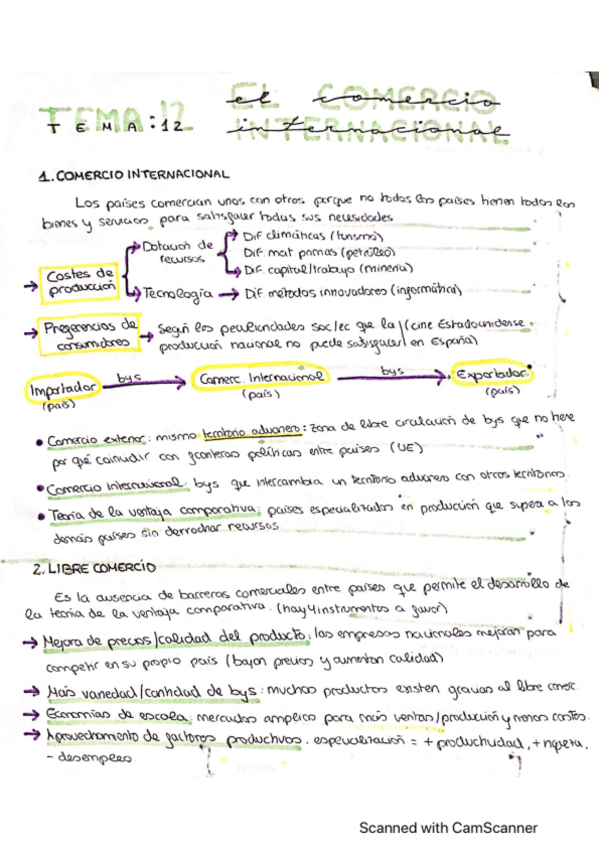 TEMA:12 EL COMERCIO
INTERNACIONAL
TEMA:12 el comercio
internacional
1. COMERCIO INTERNACIONAL
Los países comercian unos con otros porque no todos los países tienen todos los
bienes y servicios para satisfacer todas sus necesidades
Costes de producción
Dotación de recursos
Dif climáticas (turismo)
Dif. mat primas (petróleo)
Dif. capital/trabajo (minería)
Tecnología → Dif métodos innovadores (informática)
→ Preferencias de consumidores → Según las peculiaridades soc/ec que la (cine Estadounidense
producción nacional no puede satisfacer en España)
Importador (país)
bys
Comerc. Internacional (país)
bys
Exportador (país)
• Comercio exterior: mismo territorio aduanero: zona de libre circulación de bys que no tiene
por qué coincidir con fronteras políticas entre países (UE)
• Comercio internacional: bys que intercambia un territorio aduanero con otros territorios.
• Teoría de la ventaja comparativa: países especializados en producción que supera a los
demás países sin derrochar recursos
2. LIBRE COMERCIO
Es la ausencia de barreras comerciales entre países que permite el desarrollo de
la teoría de la ventaja comparativa. (hay 4 instrumentos a favor)
→ Mejora de precios/calidad del producto: las empresas nacionales mejoran para
competir en su propio país (bajan precios y aumentan calidad)
→ Más variedad/cantidad de bys: muchos productos existen gracias al libre comerc.
→ Economías de escala: mercados amplios para más ventas/producción y menos costes.
→ Aprovechamiento de factores productivos. especialización = + productividad, + riqueza,
- desempleo
Scanned with CamScanner